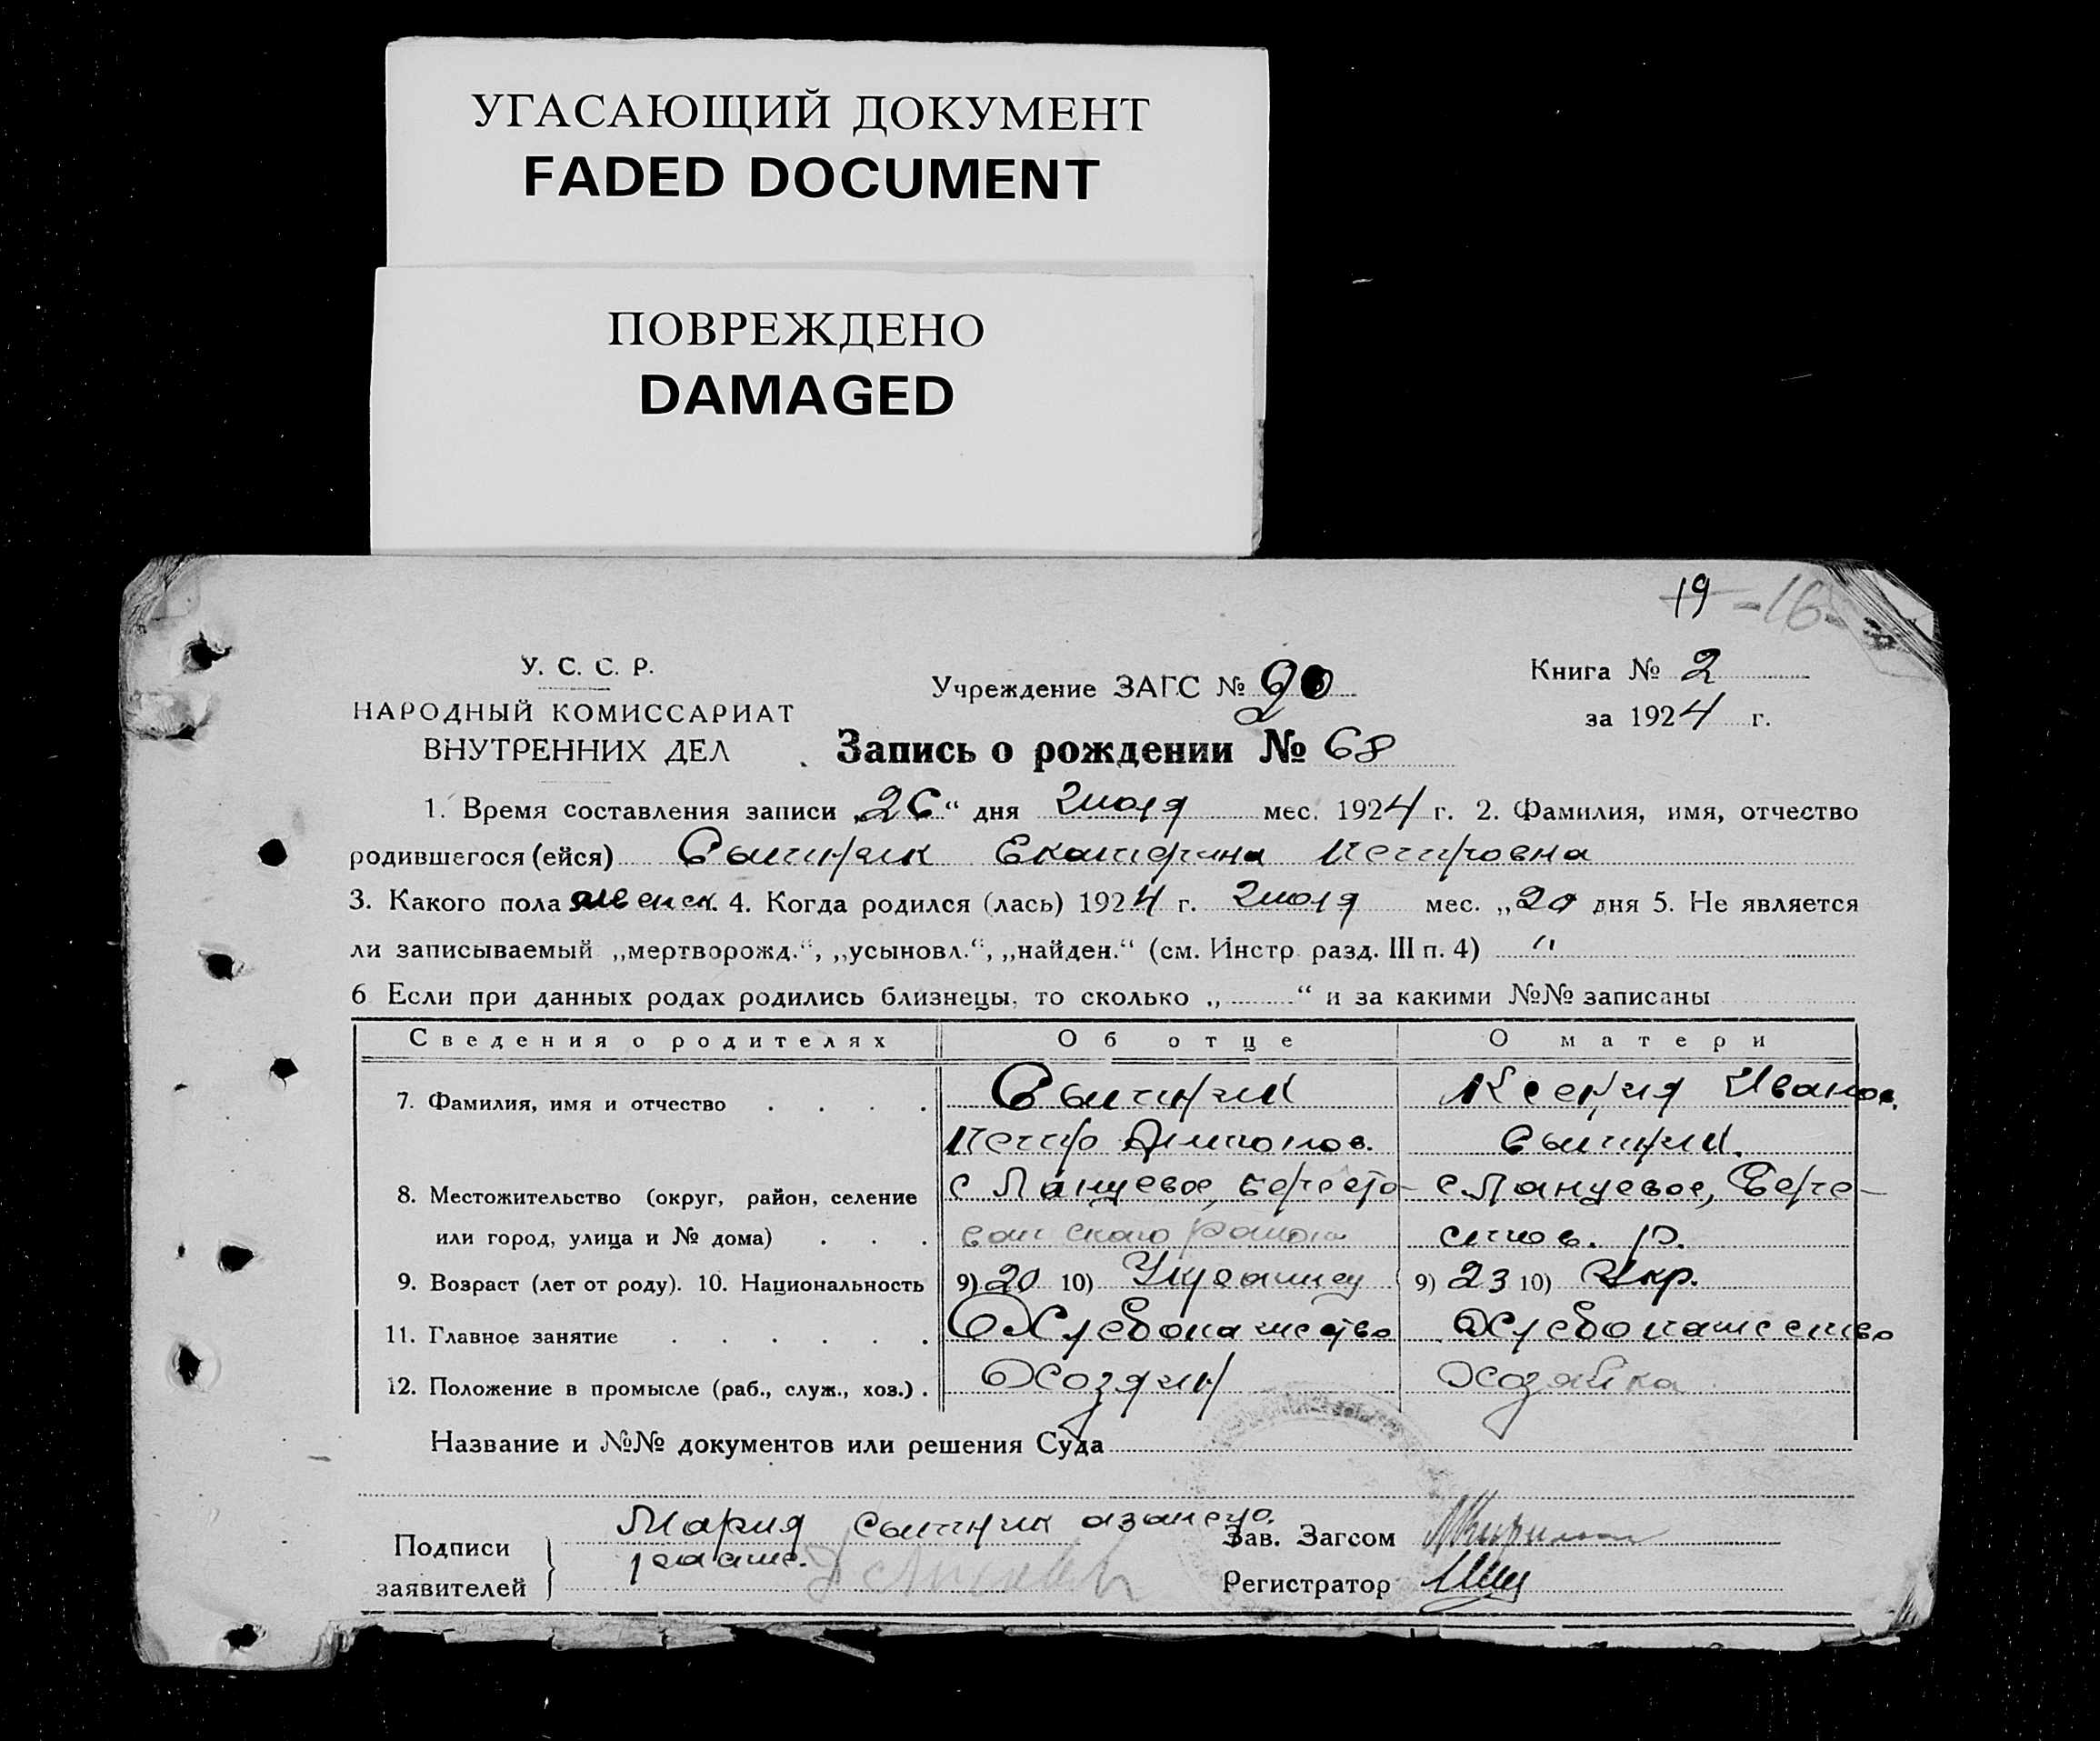 УГАСАЮЩИЙ ДОКУМЕНТ
FADED DOCUMENT
ПОВРЕЖДЕНО
DAMAGED
19 -16-
У. С. С. Р.
НАРОДНЫЙ КОМИССАРИАТ
ВНУТРЕННИХ ДЕЛ
Учреждение ЗАГС №
Книга № 2
за 1924 г.
Запись о рождении № 68
1. Время составления записи „26“ дня Июля мес. 1924 г. 2. Фамилия, имя, отчество
родившегося (ейся) Сытник Екатерина Петровна
3. Какого пола женск. 4. Когда родился (лась) 1924 г. Июля мес. „20 дня 5. Не является
ли записываемый „мертворожд.“, „усыновл.“, „найден.“ (см. Инстр. разд. III п. 4) "
6 Если при данных родах родились близнецы, то сколько „ “ и за какими №№ записаны
Сведения о родителях Об отце О матери
7. Фамилия, имя и отчество Сытник Ксения Иванов.
Петр Антонов. Сытник.
8. Местожительство (округ, район, селение с Ланцевое, Бересто- с Ланцевое, Бере-
или город, улица и № дома) района стов. р.
9. Возраст (лет от роду). 10. Национальность 9) 20 10) Украинец 9) 23 10) Укр.
11. Главное занятие Хлебопашество Хлебопашество
12. Положение в промысле (раб., служ., хоз.) Хозяин Хозяйка
Название и №№ документов или решения Суда
Подписи
заявителей
Мария Сытник
Зав. Загсом
Регистратор